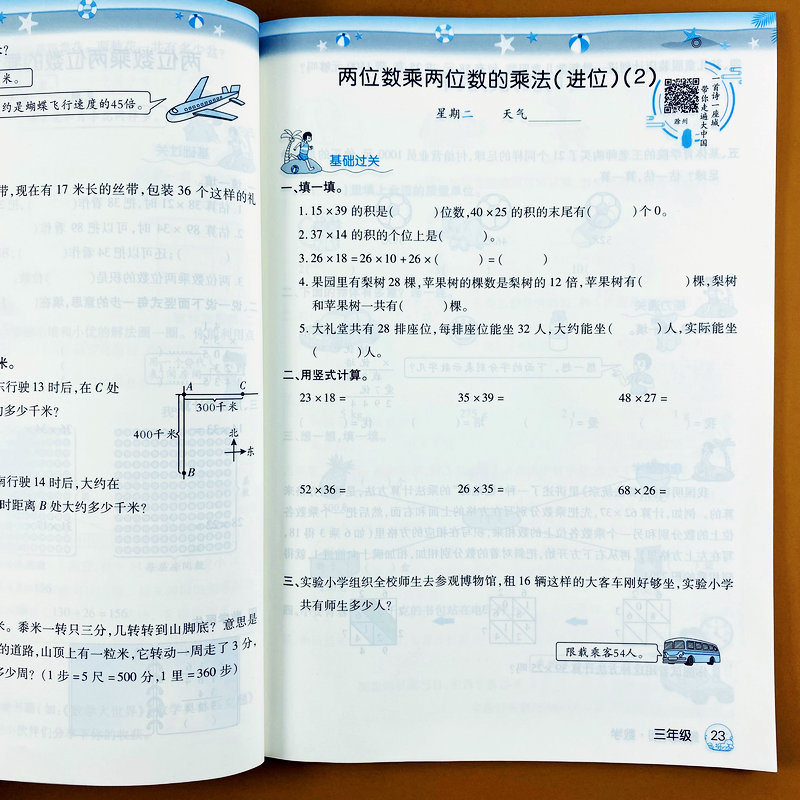 米。
约是蝴蝶飞行速度的45倍。
带,现在有 17 米长的丝带,包装 36 个这样的礼
米。
东行驶 13 时后,在 C 处
多少千米?
A
C
300千米
400千米
北
东
B
南行驶 14 时后,大约在
时距离 B 处大约多少千米?
米。黍米一转只三分,几转转到山脚底? 意思是
的道路,山顶上有一粒米,它转动一周走了 3 分,
多少周? (1 步=5 尺=500 分,1 里=360 步)
两位数乘两位数的乘法(进位)(2)
星期二 天气
一首诗一座城
带你走遍大中国
滁州
基础过关
一、填一填。
1. 15×39 的积是( )位数,40×25 的积的末尾有( )个 0。
2. 37×14 的积的个位上是( )。
3. 26×18=26×10+26×( )=( )
4. 果园里有梨树 28 棵,苹果树的棵数是梨树的 12 倍,苹果树有( )棵,梨树
和苹果树一共有( )棵。
5. 大礼堂共有 28 排座位,每排座位能坐 32 人,大约能坐( )人,实际能坐
( )人。
二、用竖式计算。
23×18= 35×39= 48×27=
52×36= 26×35= 68×26=
三、实验小学组织全校师生去参观博物馆,租 16 辆这样的大客车刚好够坐,实验小学
共有师生多少人?
限载乘客54人。
三年级 23